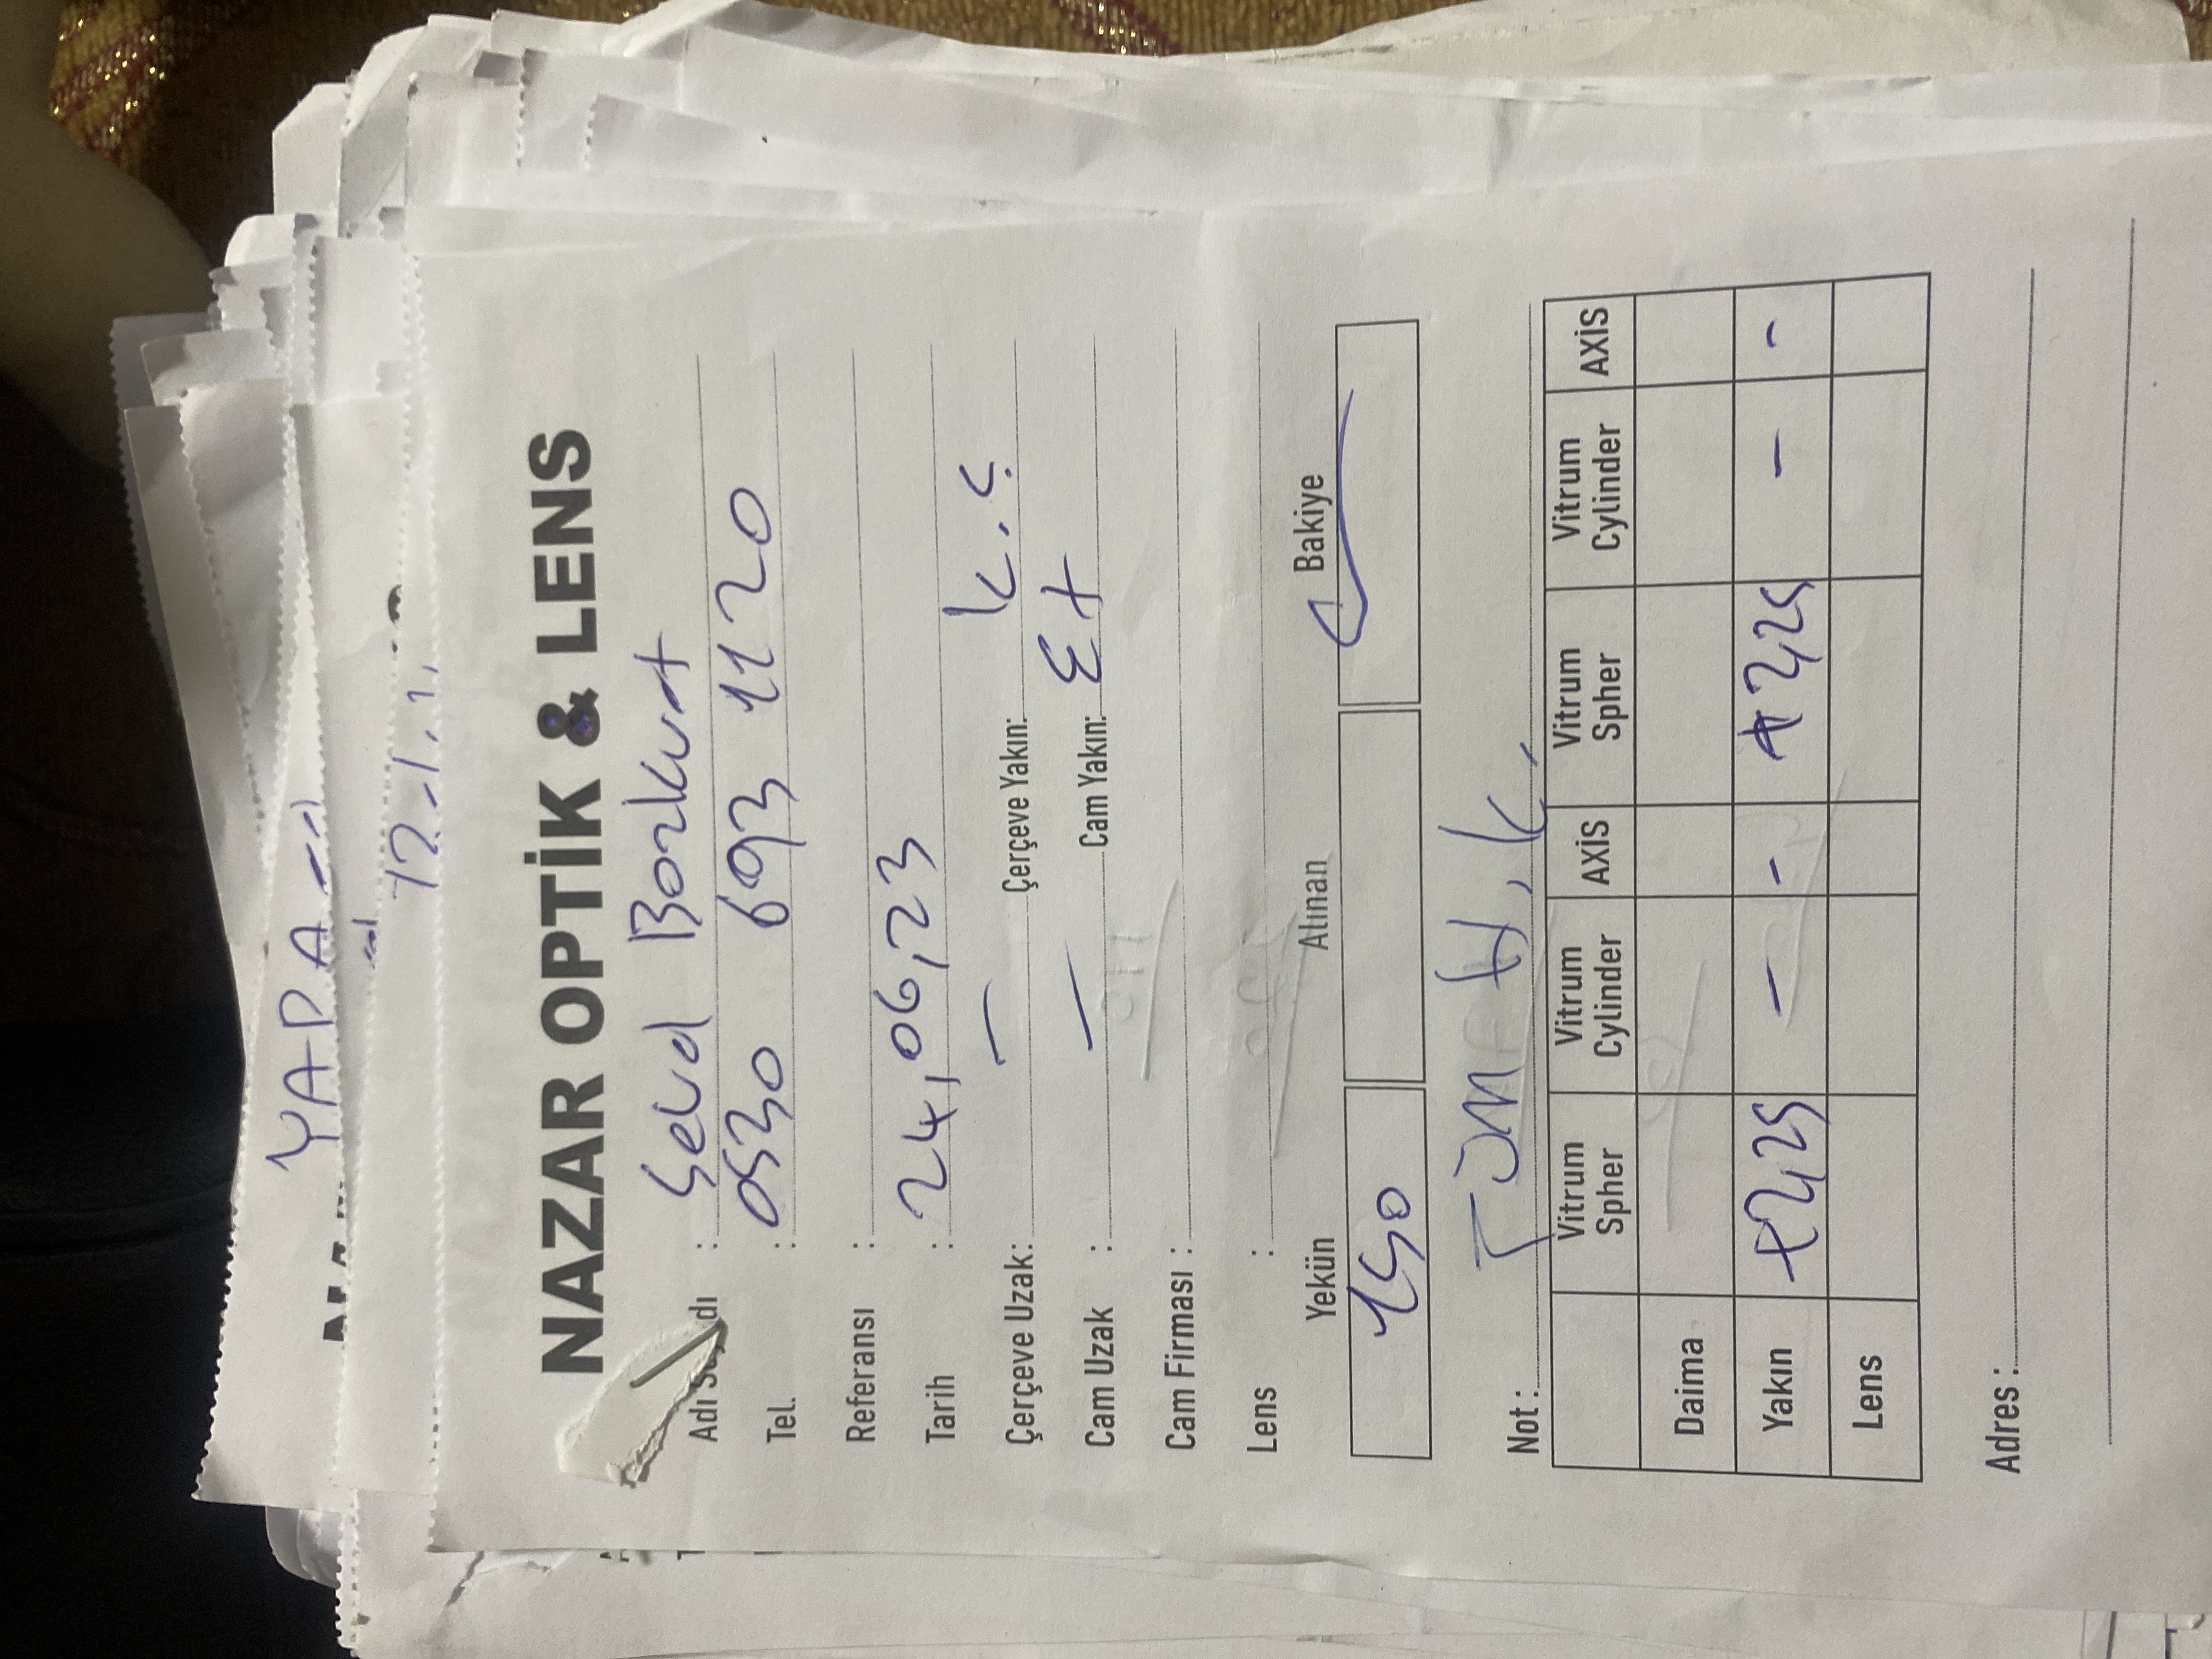 YAPA
12.1.1,
NAZAR OPTİK & LENS
Adı Soyadı : Bozkurt
Tel. : 0530 693 1120
Referansı :
Tarih : 24,06,23
Çerçeve Uzak: — Çerçeve Yakın: K.Ç
Cam Uzak : — Cam Yakın: Ex
Cam Firması :
Lens :
Yekün Alınan Bakiye
150
Not : TÜM H.K.
Vitrum Spher Vitrum Cylinder AXİS Vitrum Spher Vitrum Cylinder AXİS
Daima
Yakın +2,25 — - +2,25 — -
Lens
Adres :